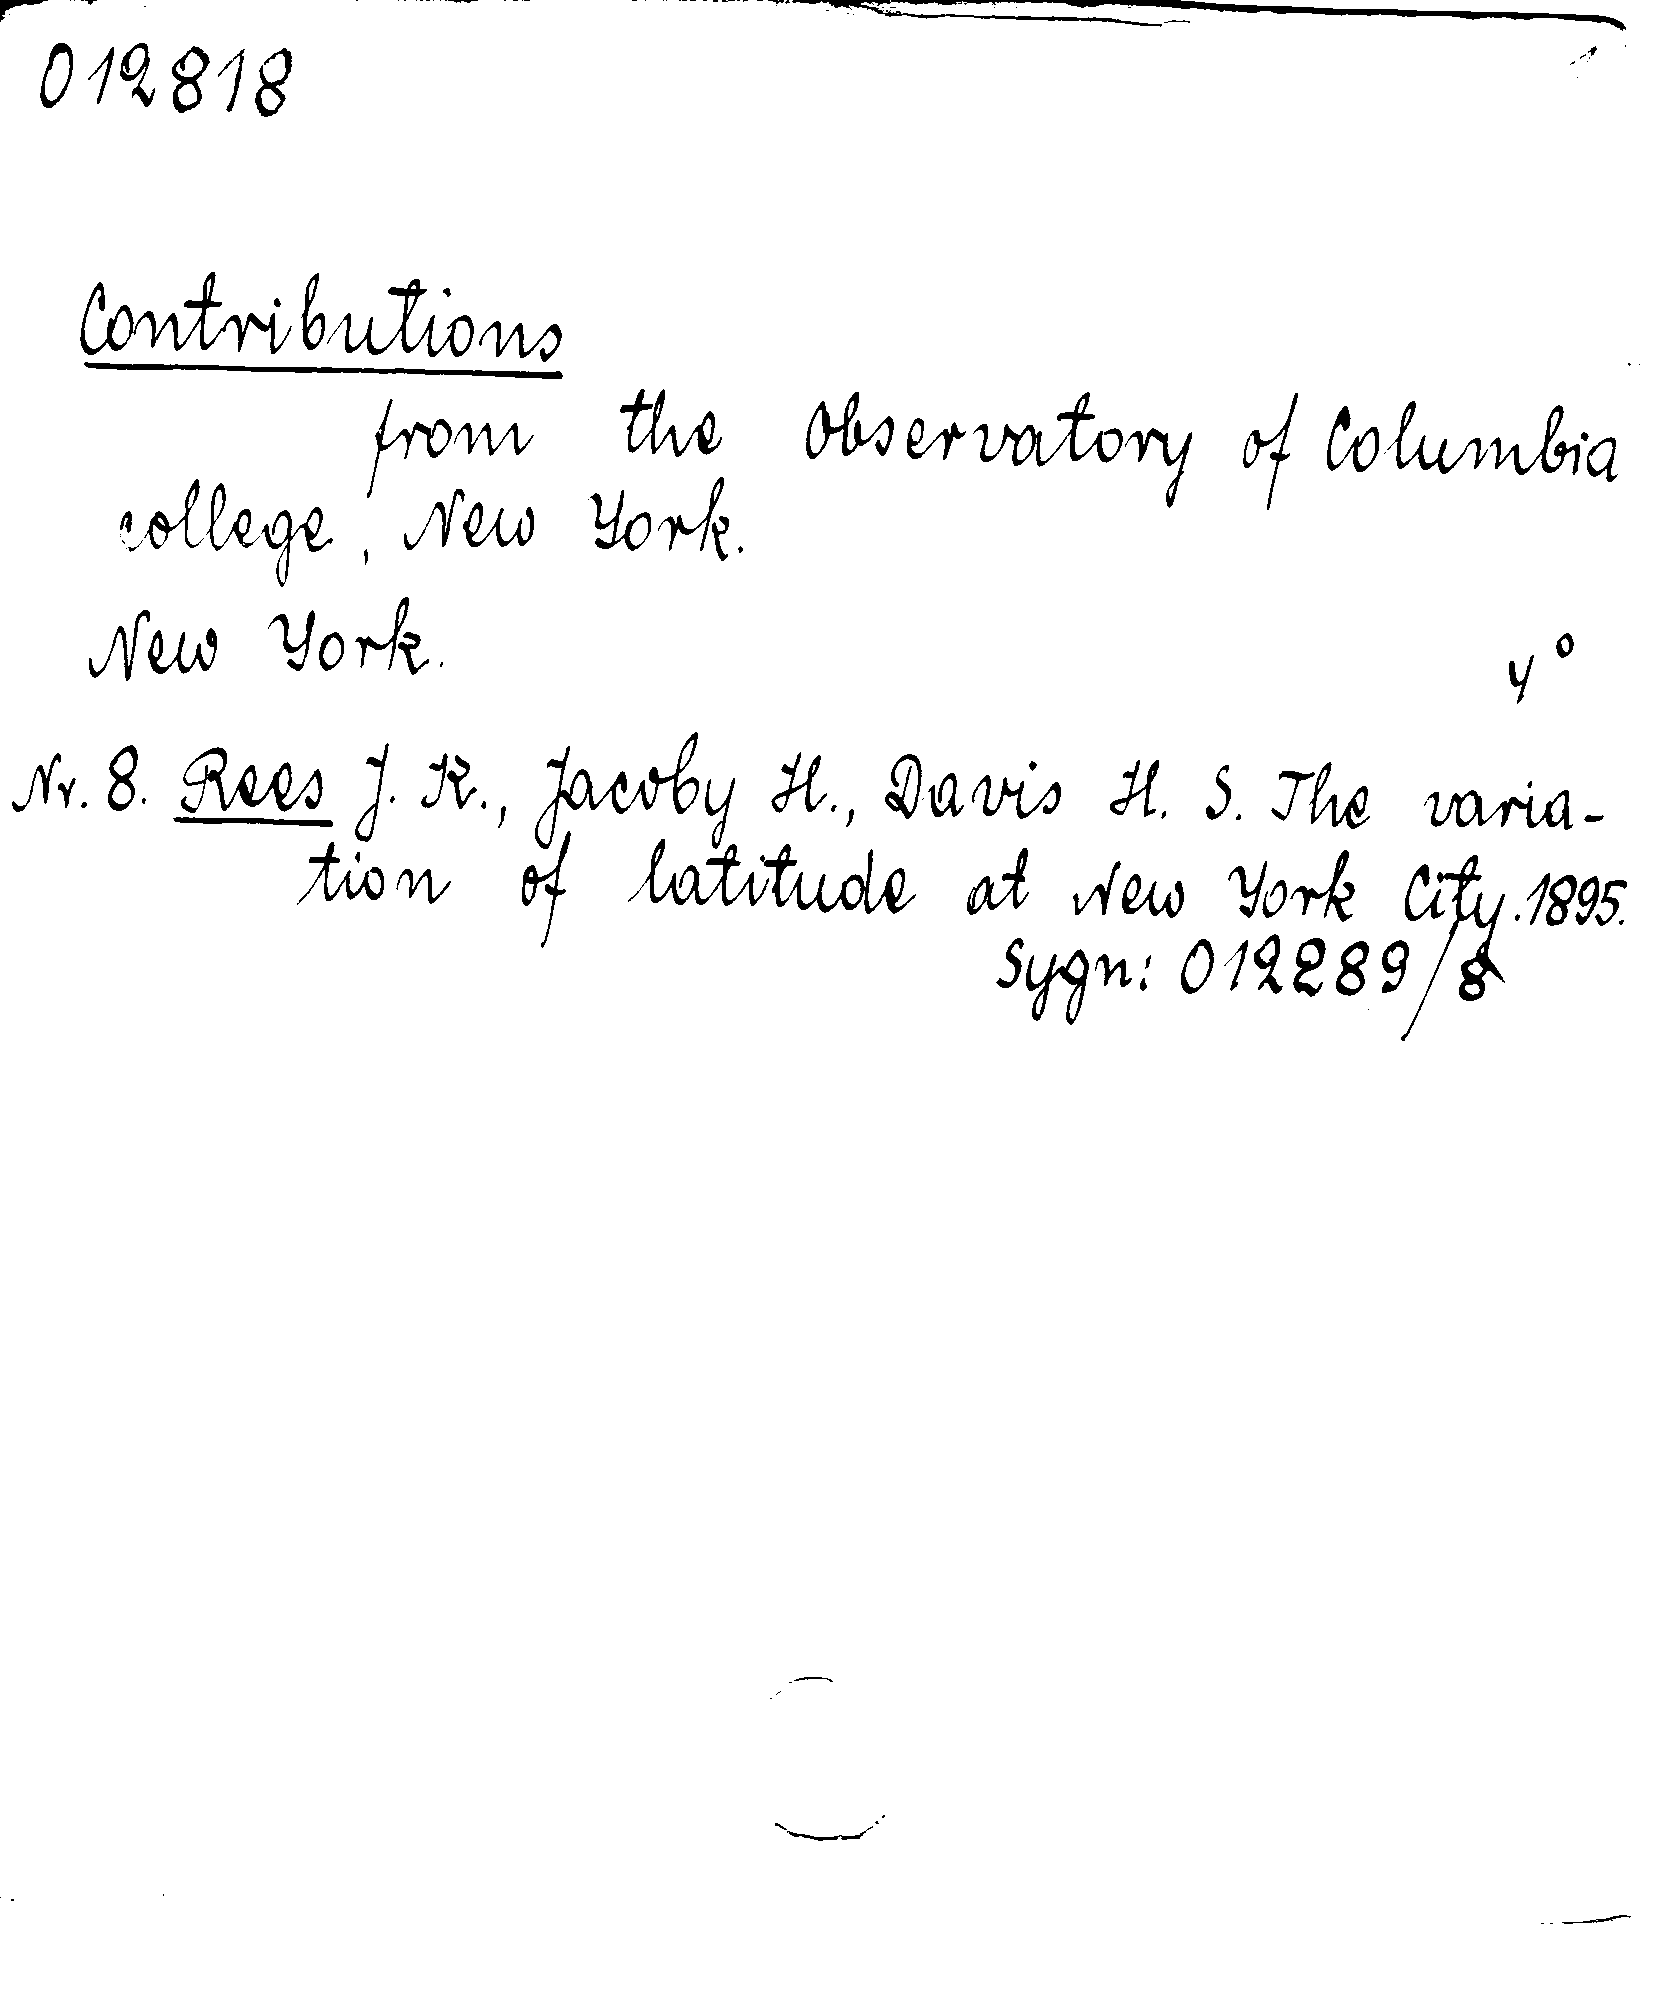 012818
Contributions
from the Observatory of Columbia
college, New York.
New York.
4°
Nr. 8. Rees J. K., Jacoby H., Davis H. S. The varia-
tion of latitude at New York City. 1895.
Sygn: 012289/8